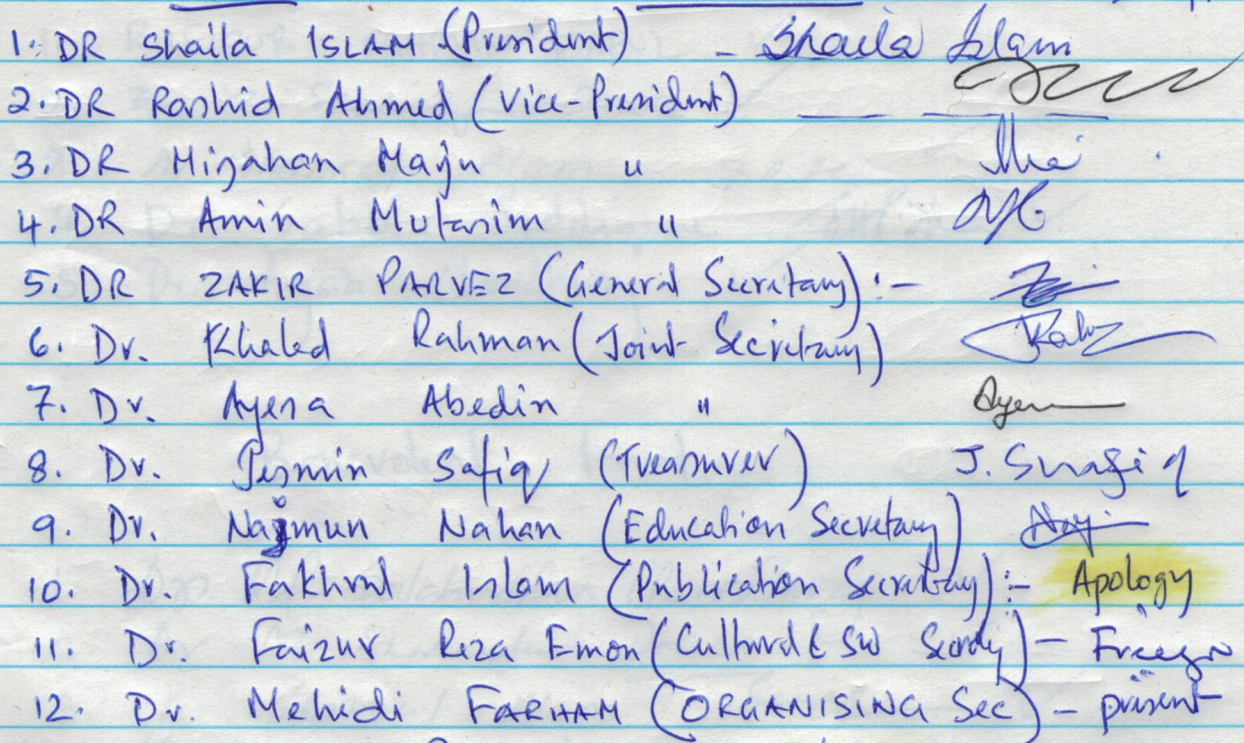 1. DR Shaila ISLAM (President) - Shaila Islam
2. DR Rashid Ahmed (Vice-President)
3. DR Mizahan Maju "
4. DR Amin Mutasim "
5. DR ZAKIR PARVEZ (General Secretary) :-
6. Dr. Khaled Rahman (Joint Secretary)
7. Dr. Ayesa Abedin " Ayes
8. Dr. Jesmin Safiq (Treasurer) J. Shafiq
9. Dr. Najmun Nahan (Education Secretary)
10. Dr. Fakhrul Islam (Publication Secretary) :- Apology
11. Dr. Faizur Reza Emon (Cultural & SW ) -
12. Dr. Mehidi FARHAM (ORGANISING Sec) - present